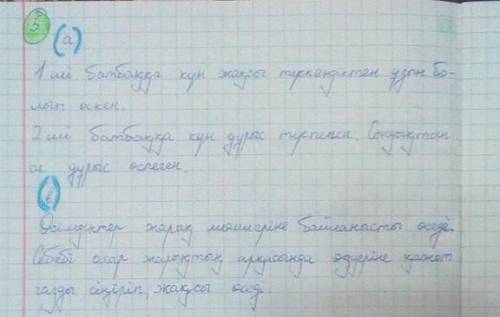 5
(а)
1 ші бақбаққа күн жақсы түскендіктен ұзын бо-
лып өскен.
2 ші бақбаққа күн дұрыс түспеген. Сондықтан
ол дұрыс өспеген.
Өсімдіктер жарық мөлшеріне байланысты өседі.
Себебі олар жарықтың арқасында өздеріне қажет
газды сіңіріп, жақсы өседі.